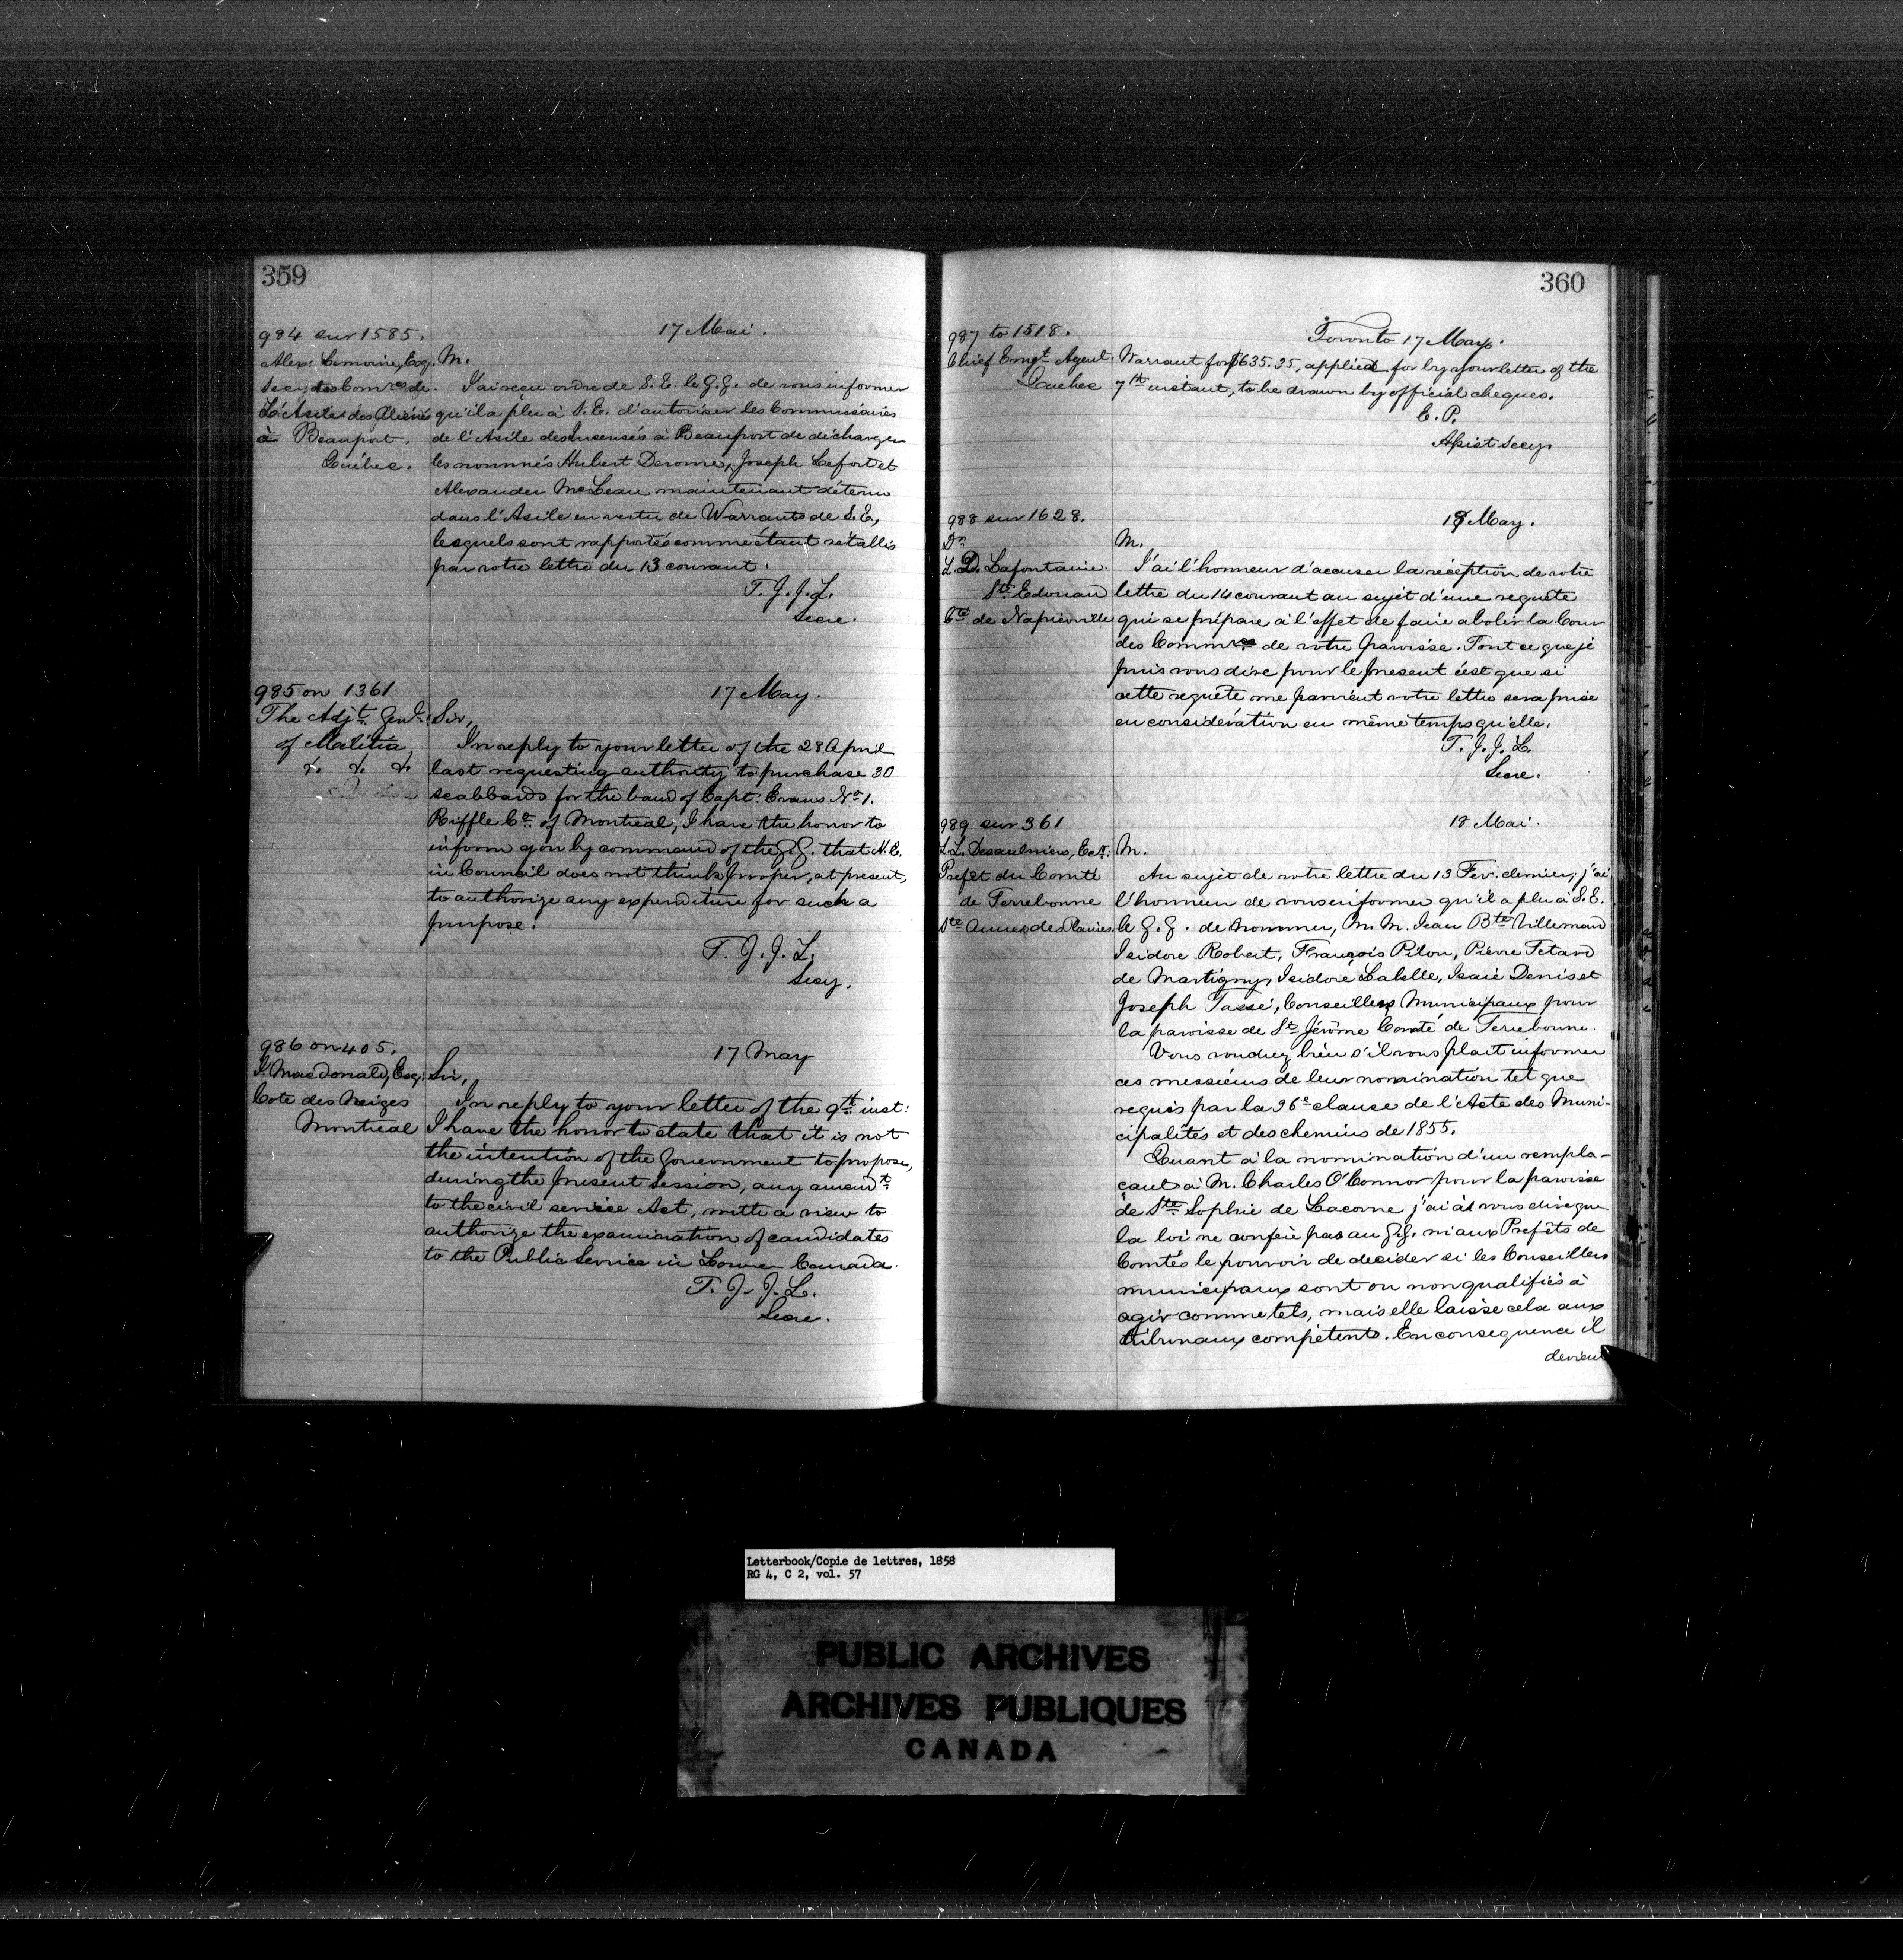 359
984 sur 1585.
17 Mai.
Alex: Lemoine, Esq.
Secy des Comres de
L'Asile des Aliénés
à Beauport.
Québec.
M.
J'ai reçu ordre de S. E. le G. G. de vous informer
qu'il a plu à S. E. d'autoriser les Commissaires
de l'Asile des Insensés à Beauport de décharger
les nommés Hubert Derome, Joseph Lefort et
Alexander McLean maintenant détenu
dans l'Asile en vertu de Warrants de S. E.,
lesquels sont rapportés comme étant rétablis
par votre lettre du 13 courant.
T. J. J. L.
Secre.
985 on 1361
17 May.
The Adjt. Genl.
of Malitia,
&. &. &.
Sir,
In reply to your letter of the 28 April
last requesting authority to purchase 30
scabbards for the band of Capt: Evans No 1.
Riffle Co. of Montreal, I have the honor to
inform you by command of the G. G. that H. E.
in Council does not think proper, at present,
to authorize any expenditure for such a
purpose.
T. J. J. L.
Secy.
986 on 405.
17 May
Macdonald, Esq:
Cote des Neiges
Montreal
Sir,
In reply to your letter of the 9th inst:
I have the honor to state that it is not
the intention of the Government to propose,
during the present session, any amendt
to the civil service Act, with a view to
authorize the examination of candidates
to the Public Service in Lower Canada.
T. J. J. L.
Secre.
360
987 to 1518.
Toronto 17 May.
Chief Emigt Agent.
Quebec
Warrant for $635.35, applied for by your letter of the
7th instant, to be drawn by official cheques.
E. P.
Assist Secy.
988 sur 1628.
18 May.
Dr
L. D. Lafontaine.
St. Edouard
Cté de Napierville
M.
J'ai l'honneur d'accuser la réception de votre
lettre du 14 courant au sujet d'une requête
qui se prépare à l'effet de faire abolir la Cour
des Commres de votre paroisse. Tout ce que je
puis vous dire pour le present c'est que si
cette requête me parvient votre lettre sera prise
en considération en même temps qu'elle.
T. J. J. L.
Secre.
989 sur 361
18 Mai.
L. L. Desaulniers, Ecr.
Prefêt du Comté
de Terrebonne
Ste Anne des Plaines
M.
Au sujet de votre lettre du 13 Fev: dernier, j'ai
l'honneur de vous informer qu'il a plu à S. E.
le G. G. de nommer, M. M. Jean Bte Villemand
Isidore Robert, François Pilon, Pierre Tetard
de Martigny, Isidore Labelle, Isaie Denis et
Joseph Tassé, Conseillers Municipaux pour
la paroisse de St Jérôme Comté de Terrebonne.
Vous voudrez bien s'il vous plait informer
ces messieurs de leur nomination tel que
requis par la 36e clause de l'Acte des Muni-
cipalités et des chemins de 1855.
Quant à la nomination d'un rempla-
çant à M. Charles O'Connor pour la paroisse
de Ste Sophie de Lacorne j'ai à vous dire que
la loi ne confère pas au G. G. ni aux Prefêts de
Comtés le pouvoir de decider si les Conseillers
municipaux sont ou non qualifiés à
agir comme tels, mais elle laisse cela aux
tribunaux compétents. En consequence il
devient
Letterbook/Copie de lettres, 1858
RG 4, C 2, vol. 57
PUBLIC ARCHIVES
ARCHIVES PUBLIQUES
CANADA